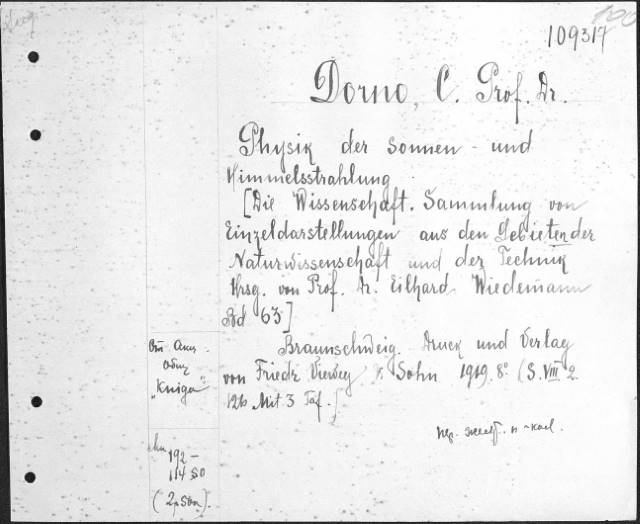 109317
Dorno, C. Prof. Dr.
Physik der Sonnen- und
Himmelsstrahlung
[Die Wissenschaft. Sammlung von
Einzeldarstellungen aus den Gebieten der
Naturwissenschaft und der Technik
Hrsg. von Prof. Dr. Eilhard Wiedemann
Bd 63]
Braunschweig. Druck und Verlag
von Friedr. Vieweg & Sohn 1919. 8° (S. VIII 2
126 Mit 3 Taf.]
„Kniga"
192 –
114 50